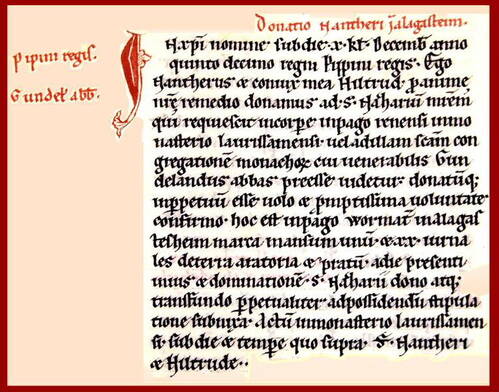 Donatio Nantheri in alagastem.
Pipini regis.
Gundel abb.
In xpi nomine sub die. x. kl. Decemb. anno
quinto decimo regni Pippini regis. Ego
Nantherus et coniux mea Hiltrud. ꝓ anime
nr̄e remedio donamus ad. s. Nazariū mr̄em
qui requiescit in corpe. in pago renensi in mo
nasterio laurissamensi. uel ad illam scam con
gregationē monachoꝝ cui uenerabilis Gun
delandus abbas preesse uidetur. donatūq;
in ꝑpetuū esse uolo et ꝓmptissima uoluntate
confirmo. hoc est in pago wormat. in alagas
tesheim marca mansum unū. et xx. iurna
les de terra aratoria et pratū. a die presenti
in ius et dominationē. s. Nazarii dono atq;
transfundo ꝑpetualiter ad possidendū stipula
tione subnixa. Actū in monasterio laurissamen
si. sub die et tempe quo supra. S. Nantheri
et Hiltrude..